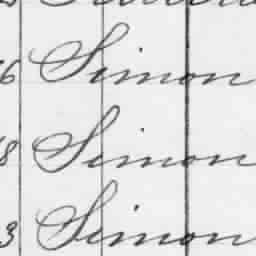 6 Simon
8 Simon
3 Simon